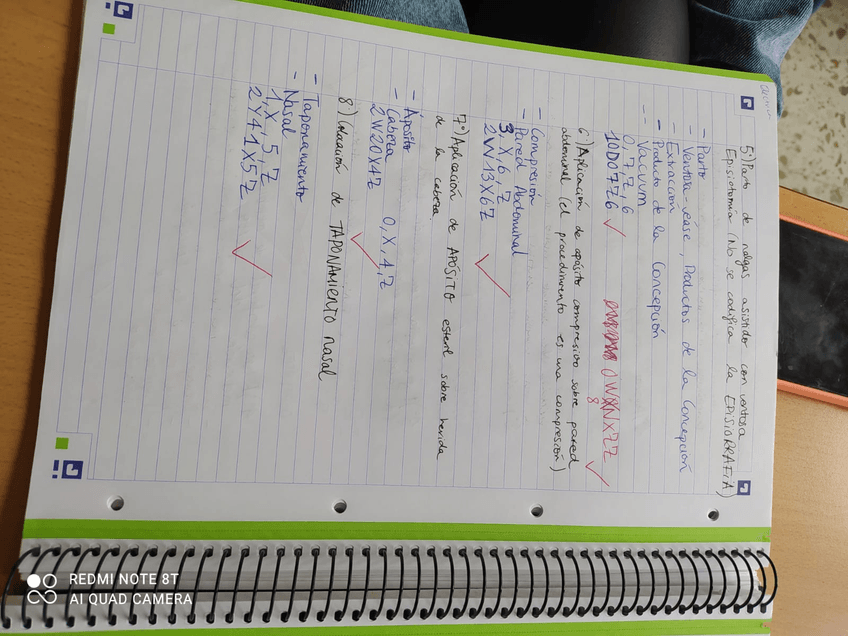 5º) Parto de nalgas asistido con ventosa
Episiotomía (No se codifica la EPISIORRAFIA)
- Parto
- Ventosa-véase, Productos de la Concepción
- Extracción
- Producto de la Concepción
-- Vacuum
0, 7, Z, 6
10D07Z6 0W8NXZZ
6º) Aplicación de apósito compresivo sobre pared
abdominal (el procedimiento es una compresión)
- Compresion
- Pared Abdominal
3, X, 6, Z
2W13X6Z
7º) Aplicación de APÓSITO esteril sobre herida
de la cabeza.
- Apósito
- Cabeza 0, X, 4, Z
2W20X4Z
8º) Colocación de TAPONAMIENTO nasal
- Taponamiento
- Nasal
1, X, 5, Z
2Y41X5Z
REDMI NOTE 8T
AI QUAD CAMERA